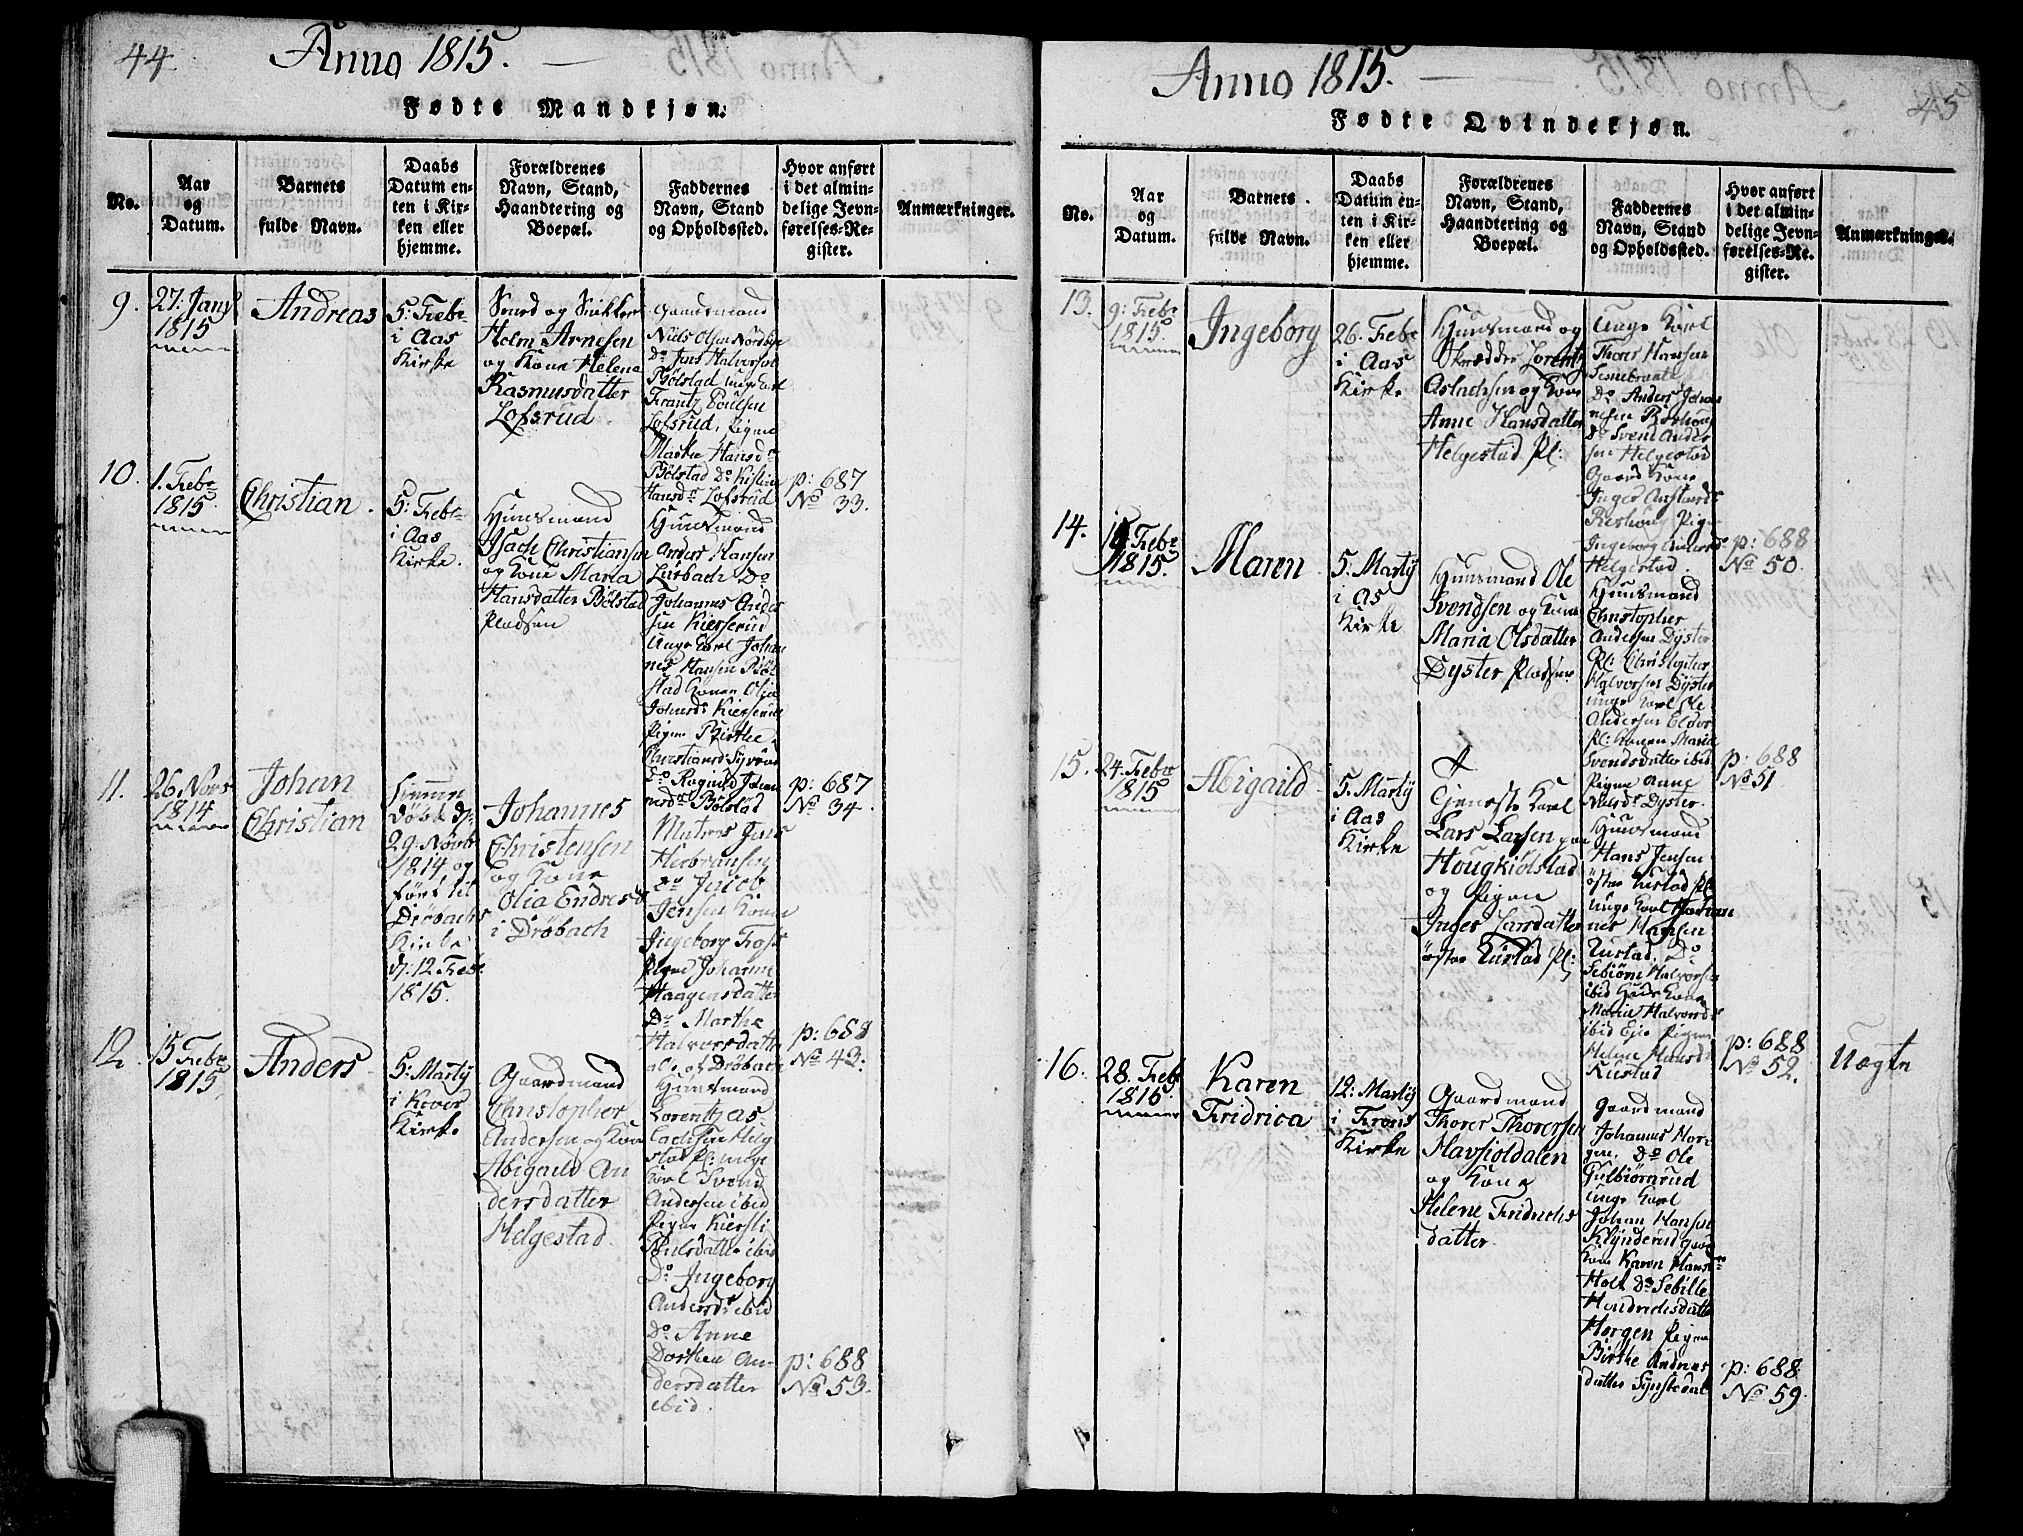 44
Anno 1815.
Fødte Mandkjøn.
No.
Aar
og
Datum.
Barnets
fulde Navn.
Daabs
Datum en-
ten i Kir-
ken eller
hjemme.
Forældrenes
Navn, Stand,
Haandtering og
Boepæl.
Faddernes
Navn, Stand
og Opholdssted.
Hvor anført
i det almin-
delige Jevn-
førelses-Re-
gister.
Anmærkninger.
9.
27. Janr
1815
Andreas
5. Febr
i Aas
Kirke
Smed og Snikker
Holm Arnesen
og Kone Helena
Rasmusdatter
Lofsrud
Gaardmand
Niels Olsen Nordbye
Do Jens Halvorsen
Bölstad unge Karl
Frantz Poulsen
Lofsrud, Pigen
Marthe Hansdr
Bölstad Do Kistine
Hansdr Lofsrud
p: 687
No 33.
10.
1. Febr
1815
Christian.
5. Febr
i Aas
Kirke.
Huusmand
Isach Christiansen
og Kone Maria
Hansdatter Bölstad
Pladsen
Huusmand
Anders Hansen
Lusbach Do
Johannes Ander
sen Kierserud
Unge Karl Johan
nes Hansen Böl
stad Konen Olia
Johnsdr Kierserud
Pigen Birthe
Christiansdr
Do Ragnild Johan
nesdr Bölstad
p: 687
No 34.
11.
26 Novr
1814
Johan
Christian
hjemme
Döbt d:
29. Novbr
1814 og
ført til
Dröbachs
Kirke
d: 12 Febr
1815.
Johannes
Christensen
og Kone
Olia Endresdr
i Dröbach
Matros Jens
Herbransen
Do Jacob
Jensen Konen
Ingeborg Foss
Pigen Johanne
Haagensdatter
Do Marthe
Halvorsdatter
alle af Dröbach
p: 688
No 43.
12.
15 Febr
1815.
Anders
5. Martÿ
i Kroer
Kirke
Gaardmand
Christopher
Andersen og Kone
Abigaild An
dersdatter
Helgestad
Huusmand
Lorentz As
lachsen Helg
stad Pl: unge
Karl Svend
Andersen ibid
Pigen Kiersti
Poulsdatter ibid
Do Ingeborg
Andersdr ibid
Do Anne
Dorthea An-
dersdatter
ibid.
p: 688
No 53.
Anno 1815.
45
Fødte Qvindekjøn.
No.
Aar
og
Datum.
Barnets
fulde Navn.
Daabs
Datum en-
ten i Kir-
ken eller
hjemme.
Forældrenes
Navn, Stand,
Haandtering og
Boepæl.
Faddernes
Navn, Stand
og Opholdssted.
Hvor anført
i det almin-
delige Jevn-
førelses-Re-
gister.
Anmærkninger.
13.
9. Febr
1815.
Ingeborg
26. Febr
i Aas
Kirke
Huusmand og
Skrædder Lorentz
Aslachsen og Kone
Anne Hansdatter
Helgestad Pl:
Unge Karl
Thorer Hansen
Do Anders Johan
nesen
Do Svend Ander
sen Helgestad
Gaard Kone
Inger
Pigen
Ingeborg Andersdr
Helgestad.
p: 688
No 50.
14.
Febr
1815.
Maren
5. Martÿ
i As
Kirke
Huusmand Ole
Svendsen og Kone
Maria Olsdatter
Dyster Pladsen
Huusmand
Christopher
Andersen Dyster
Pl: Christopher
Halvorsen Dyster
unge Karl Ole
Andersen Eldor
Pl: Konen Maria
Svendsdatter ibid
Pigen Anne
Nielsdr Dyster.
p: 688
No 51
15.
24. Febr
1815
Abigaild
5. Martÿ
i Aas
Kirke
Tjeneste Karl
Lars Larsen paa
Hougkiölstad
og Pigen
Inger Larsdatter
östre Rustad Pl:
Huusmand
Hans Jensen
östre Rustad Pl:
Unge Karl Johan
nes Hansen
Rustad. Do
Sebiörn Halvorsen
ibid Huus Kone
Maria Halvorsdr
ibid Eje Pigen
Helene Hansdr
Rustad
p: 688
No 52.
Uægte
16.
28. Febr
1815
Karen
Fridrica
12. Martÿ
i Frons
Kirke
Gaardmand
Thorer Thoresen
Havsioldalen
og Kone
Helene Fridrichs
datter
Gaardmand
Johannes Hor-
gen. Do Ole
Gulbiörnrud
unge Karl
Johan Hansen
Klynderud gaard
Kone Karen Hansdr
Holt Do Sebille
Hendrichsdatter
Horgen Pigen
Birthe Andreas
datter
p: 688
No 59.